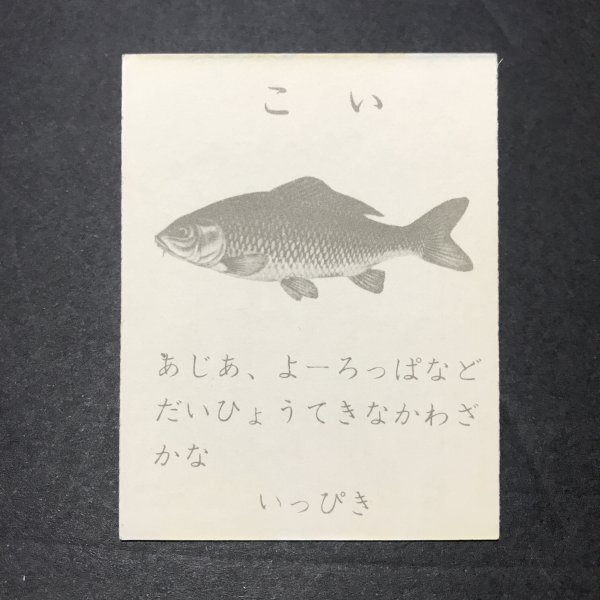 こい
あじあ、よーろっぱなど
だいひょうてきなかわざ
かな
いっぴき